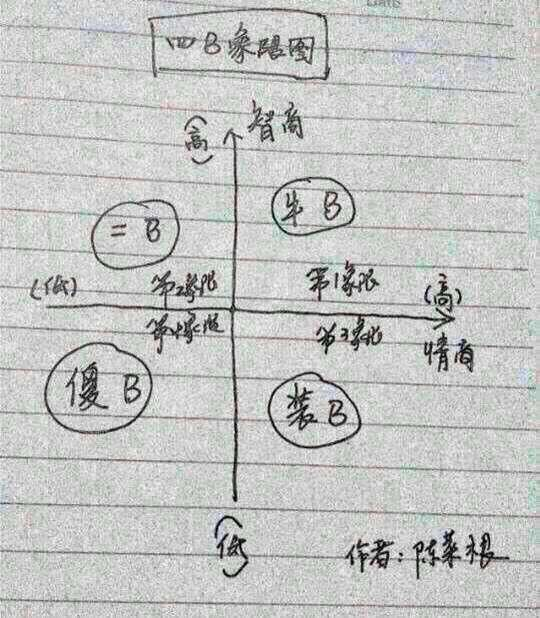 四B象限图
(高)
智商
二B
牛B
(低)
第2象限
第1象限
(高)
第4象限
第3象限
情商
傻B
装B
(低)
作者:陈菜根